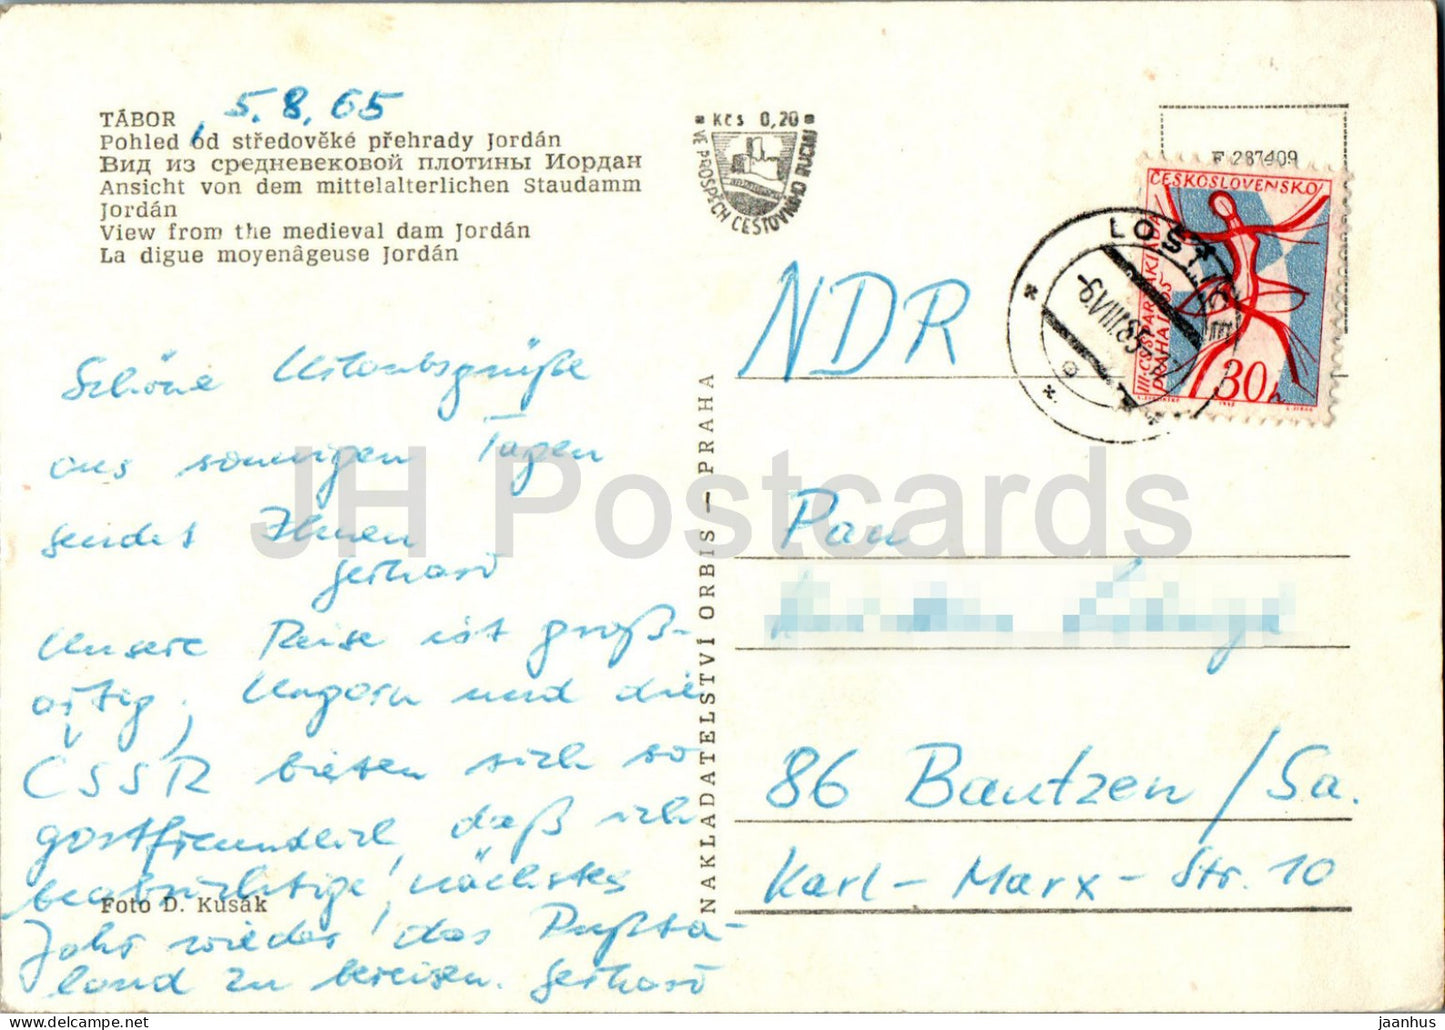 5.8.65
TÁBOR
Pohled od středověké přehrady Jordán
Вид из средневековой плотины Иордан
Ansicht von dem mittelalterlichen Staudamm
Jordán
View from the medieval dam Jordán
La digue moyenâgeuse Jordán
Kčs 0,20
VE PROSPĚCH CESTOVNÍHO RUCHU
F 287409
ČESKOSLOVENSKO
III. CELOSTÁTNÍ SPARTAKIÁDA
PRAHA 1965
30 h
-6.VIII.65
NDR
Schöne Urlaubsgrüße
aus sonnigen Tagen
sendet Ihnen
Gerhard
Unsere Reise ist groß-
artig, Ungarn und die
ČSSR bieten sich so
gastfreundlich, daß ich
beabsichtige, nächstes
Jahr wieder das Pußta-
land zu bereisen. Gerhard
Foto D. Kusák
NAKLADATELSTVÍ ORBIS — PRAHA
Pan
86 Bautzen / Sa.
Karl-Marx-Str. 10
JH Postcards
jaanhus — https://www.delcampe.net